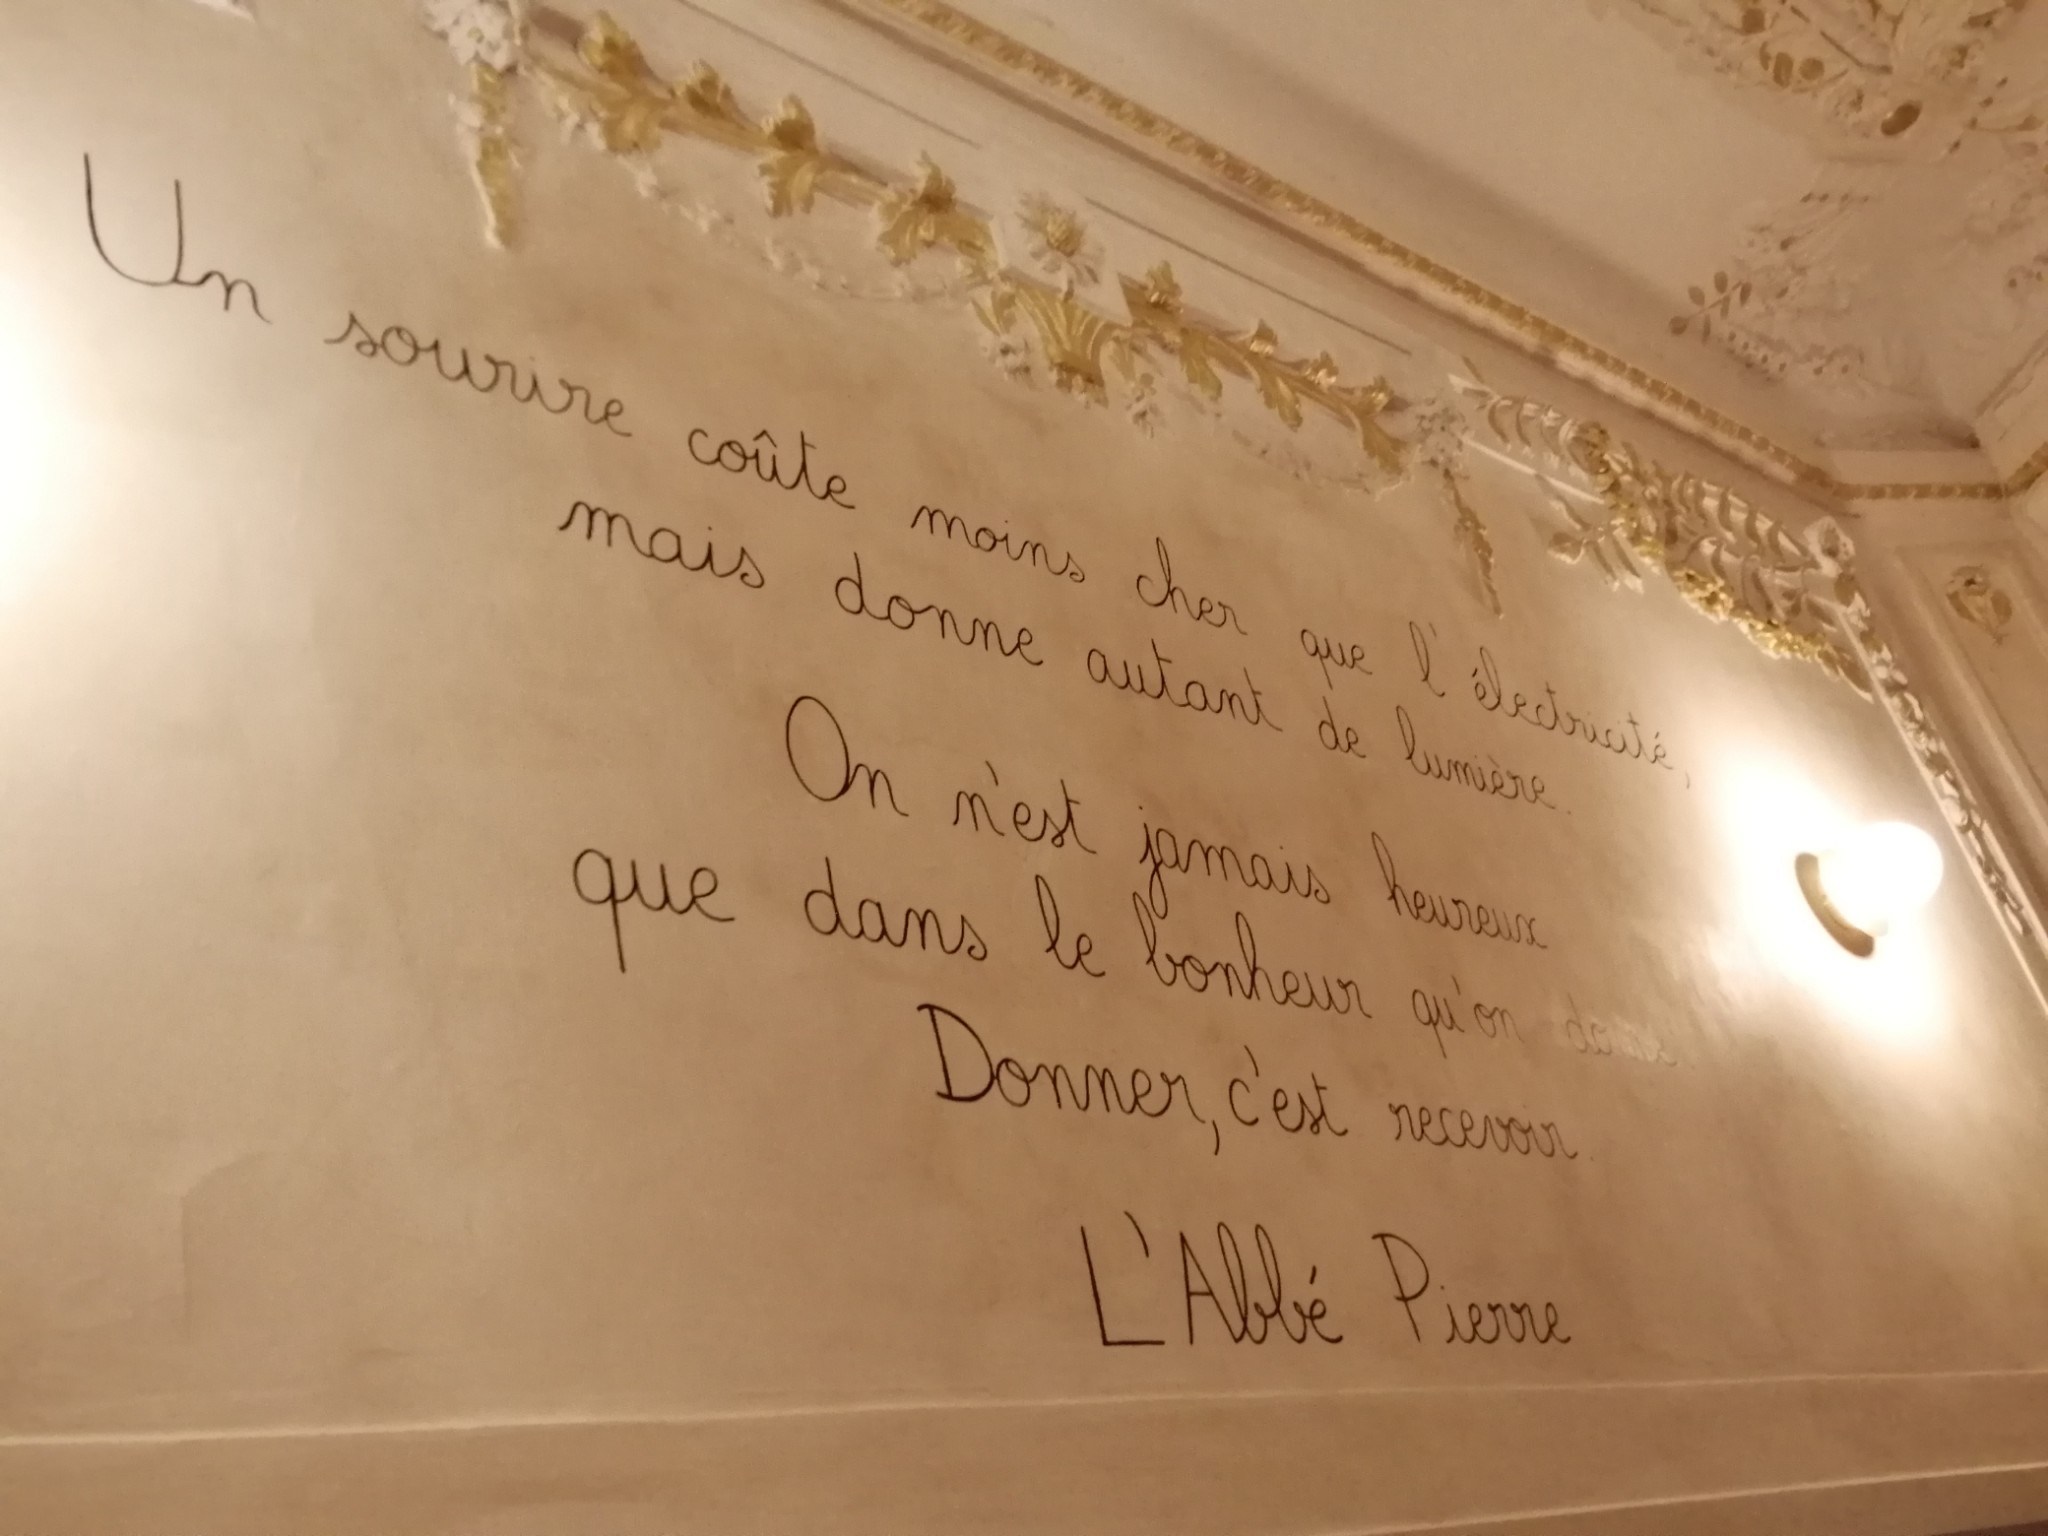 Un sourire coûte moins cher que l'électricité,
mais donne autant de lumière.
On n'est jamais heureux
que dans le bonheur qu'on donne
Donner, c'est recevoir.
L'Abbé Pierre